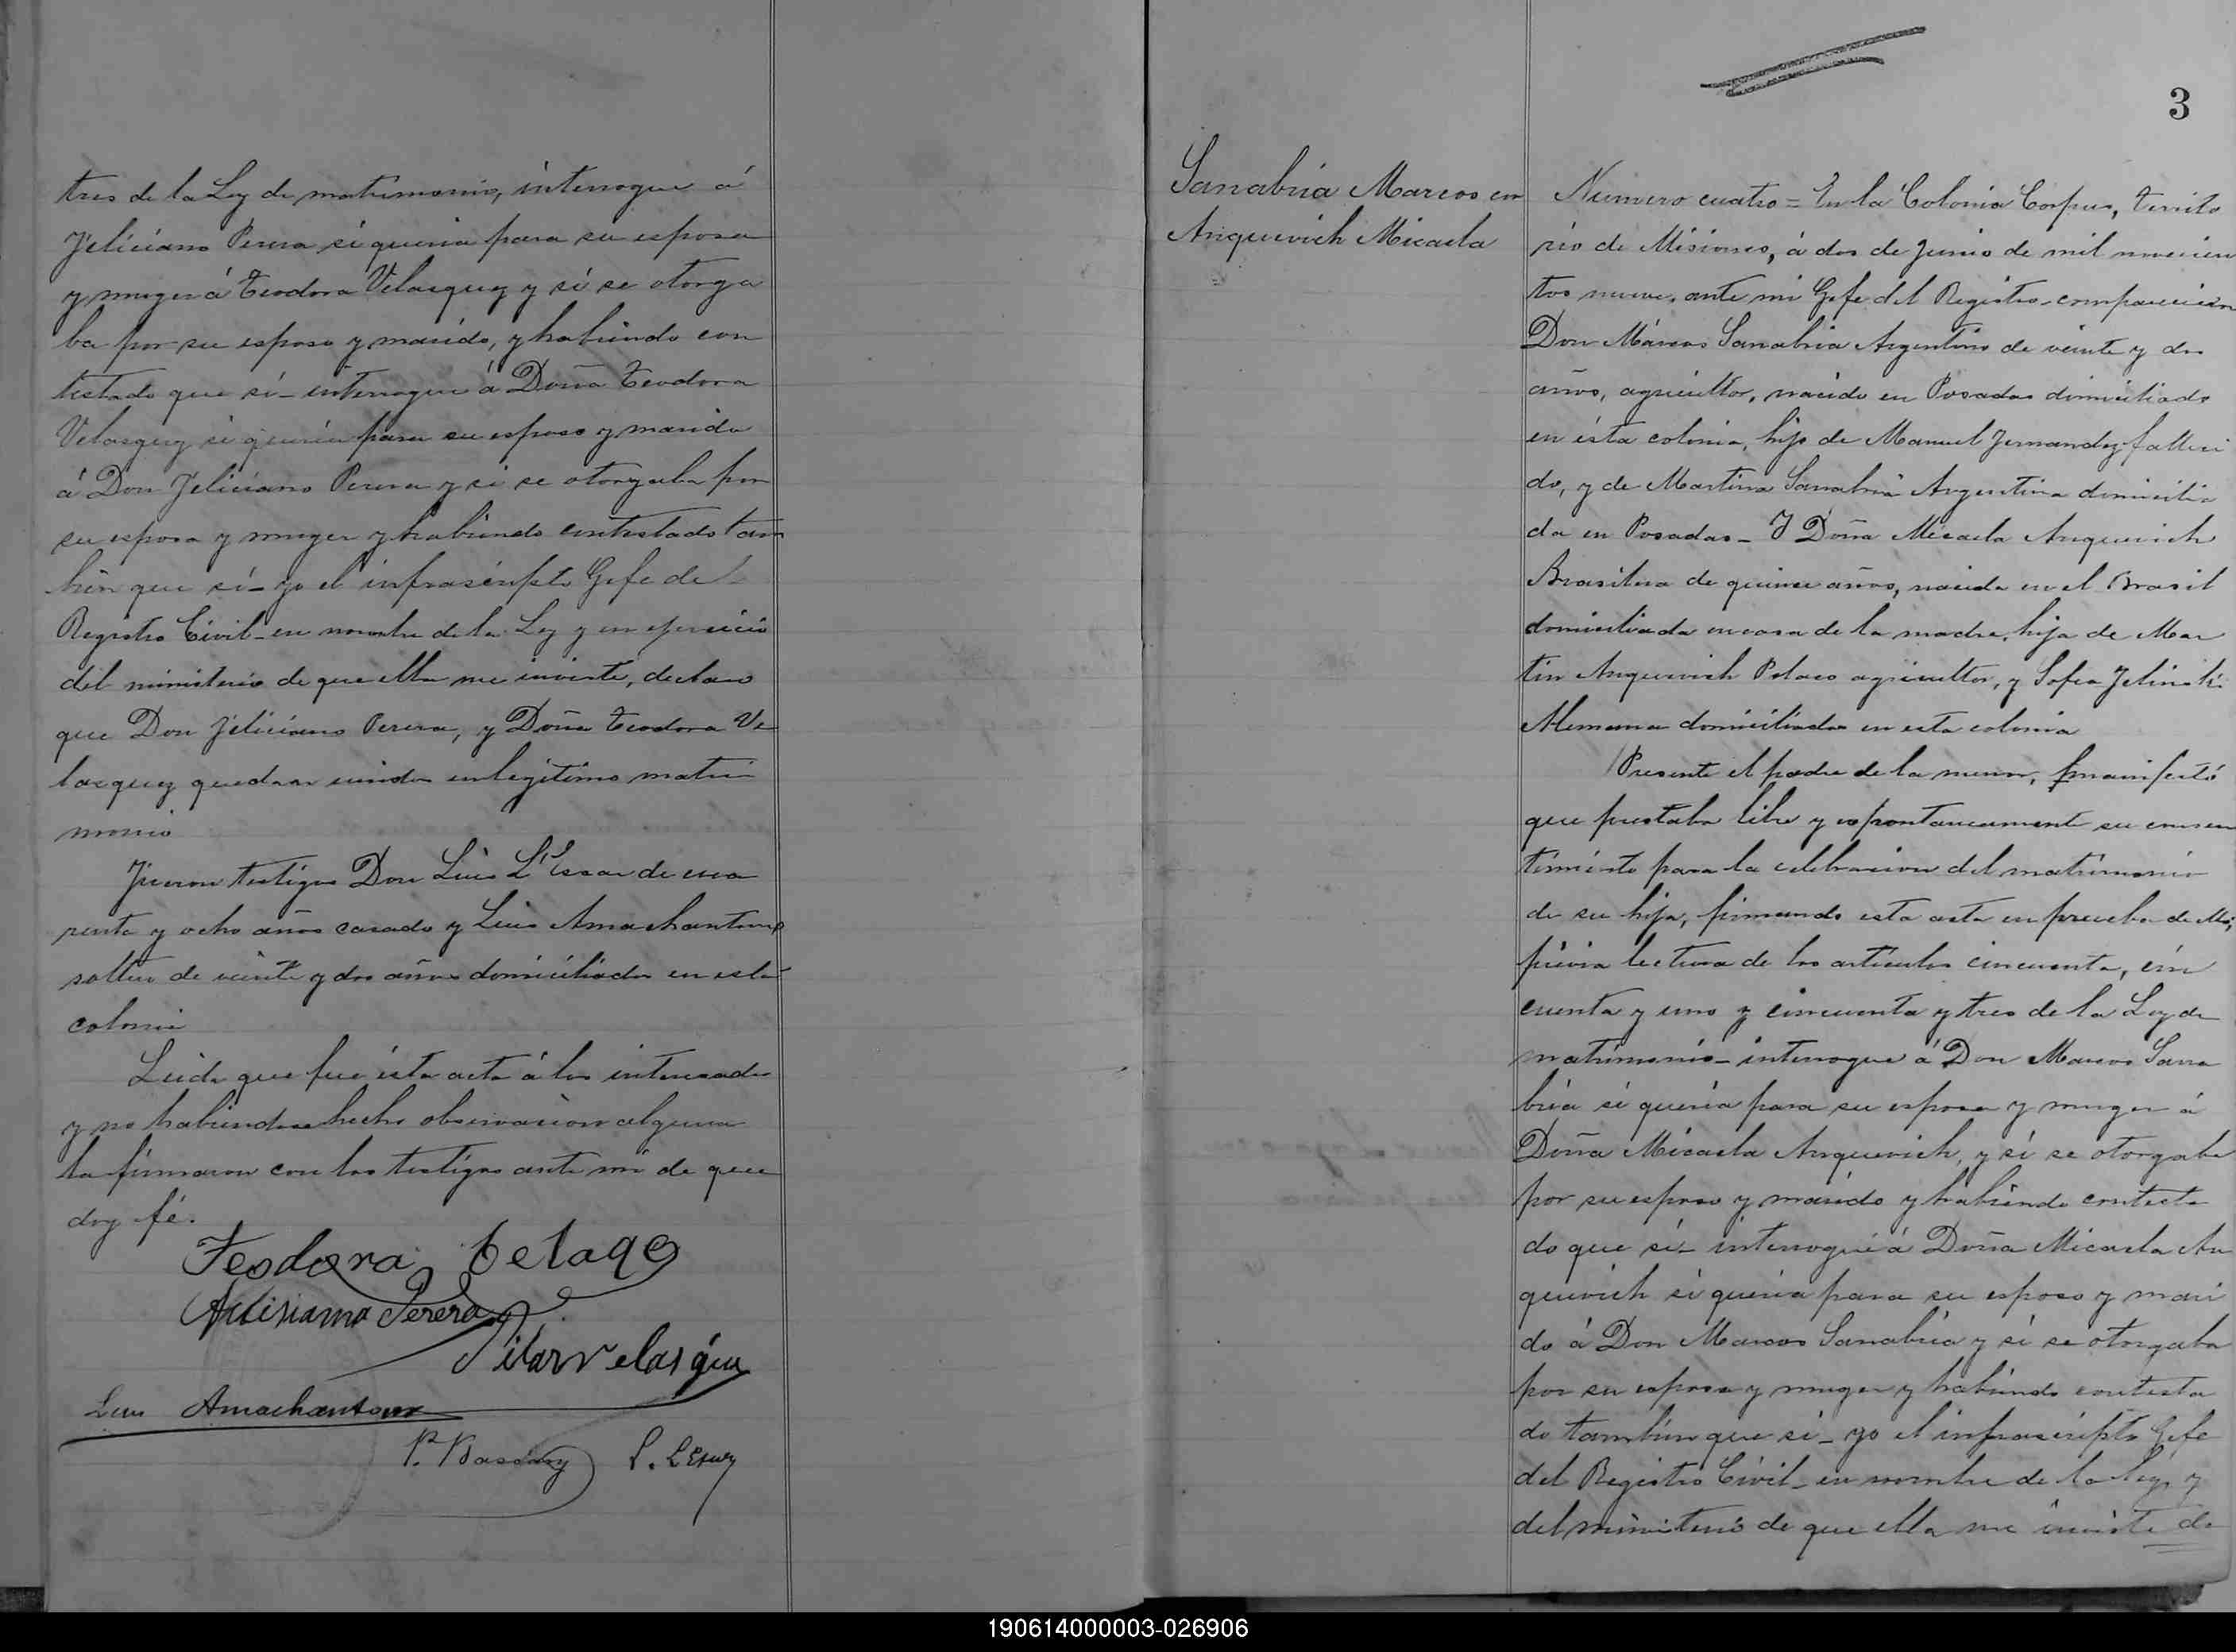 tres de la Ley de matrimonio, interrogue á
Feliciano Perera si queria para su esposa
y muger á Teodora Velasquez y si se otorga
ba por su esposo y marido, y habiendo con
testado que si_ interrogue á Doña Teodora
Velasquez si queria para su esposo y marido
á Don Feliciano Perera y si se otorgaba por
su esposa y muger y habiendo contestado tam
bien que si_ yo el infrascripto Gefe del
Registro Civil_ en nombre de la Ley y en ejercicio
del ministerio de que ella me inviste, declaro
que Don Feliciano Perera, y Doña Teodora Ve
lasquez quedan unidos en legítimo matri
monio
Fueron testigos Don Luis L'Essar de cua
renta y ocho años casado y Luis Amachantoux
soltero de veinte y dos años domiciliados en esta
colonia
Leida que fue ésta acta á los interesados
y no habiendose hecho observacion alguna
la firmaron con los testigos ante mi de que
doy fé.
Teodora Belaqs
Felisiano Perera
Pilar Velasques
Luis Amachantoux
3
Sanabria Marcos con
Anquevich Micaela
Número cuatro = En la Colonia Corpus, territo
rio de Misiones, á dos de Junio de mil novecien
tos nueve, ante mi Gefe del Registro_ comparecieron
Don Márcos Sanabria Argentino de veinte y dos
años, agricultor, nacido en Posadas domiciliado
en ésta colonia, hijo de Manuel Fernandez falleci
do, y de Martina Sanabria Argentina domicilia
da en Posadas_ Y Doña Micaela Anquevich
Brasilera de quince años, nacida en el Brasil
domiciliada en casa de la madre, hija de Mar
tin Anquevich Polaco agricultor, y Sofia Jelinski
Alemana domiciliados en esta colonia
Presente el padre de la menor, manifestó
que prestaba libre y espontaneamente su consen
timiento para la celebracion del matrimonio
de su hija, firmando esta acta en prueba de ello,
prévia lectura de los artículos cincuenta, cin
cuenta y uno y cincuenta y tres de la Ley de
matrimonio_ interrogue á Don Marcos Sana
bria si queria para su esposa y muger á
Doña Micaela Anquevich, y si se otorgaba
por su esposo y marido y habiendo contesta
do que si_ interrogué á Doña Micaela An
quevich si queria para su esposo y mari
do á Don Marcos Sanabria y si se otorgaba
por su esposa y muger y habiendo contesta
do tambien que si_ yo el infrascripto Gefe
del Registro Civil_ en nombre de la ley, y
del ministerio de que ella me inviste de
190614000003-026906